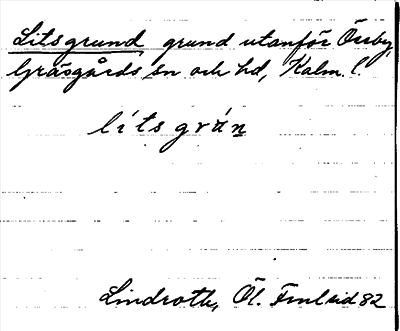 Litsgrund, grund utanför Össby,
Gräsgårds sn och hd, Kalm. l.
lítsgrán
Lindroth, Öl. Fml sid 82